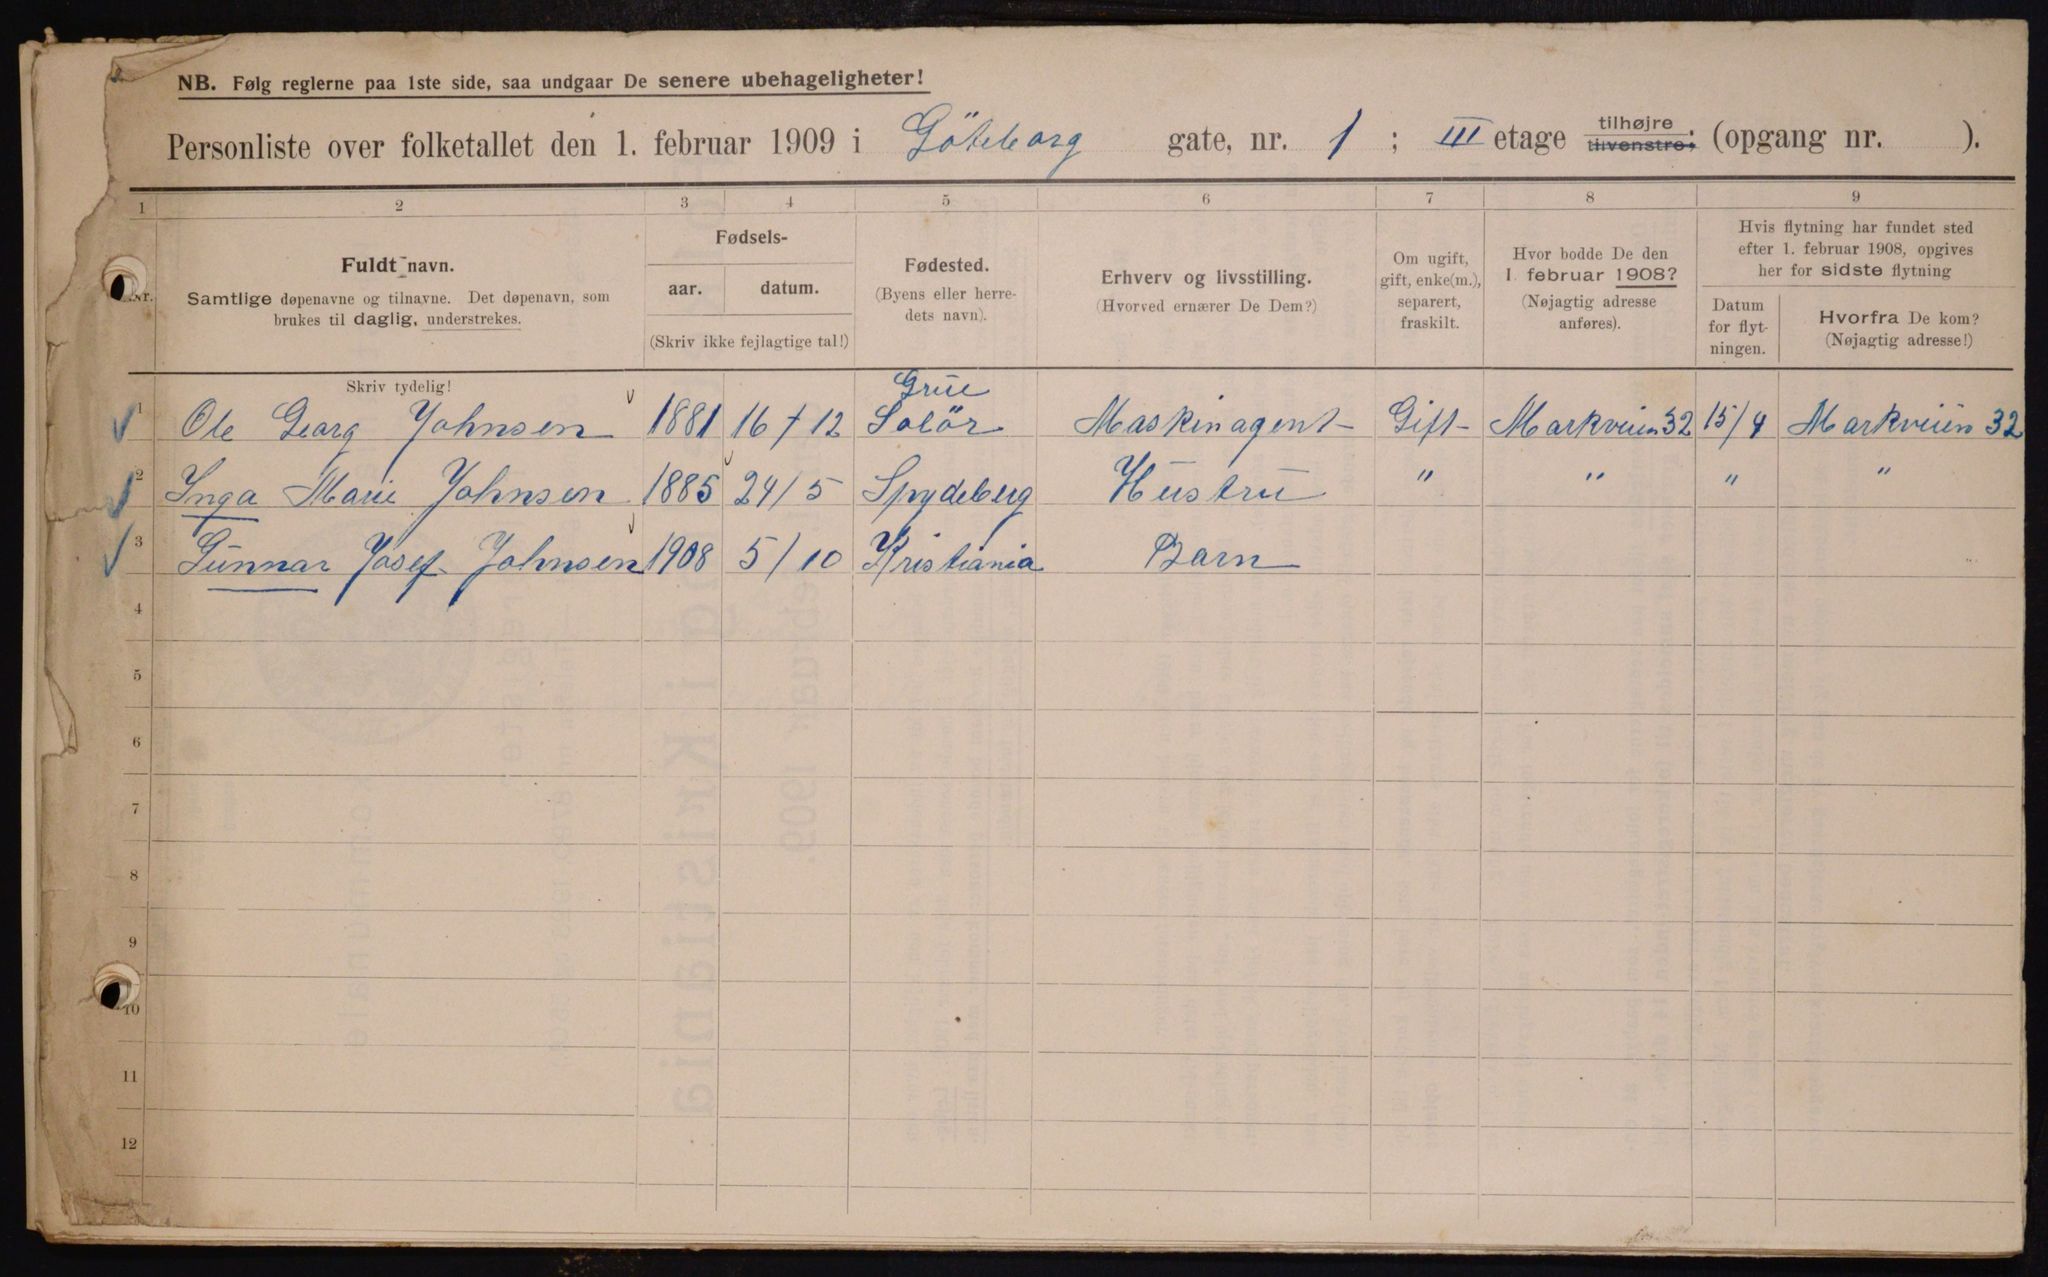 NB. Følg reglerne paa 1ste side, saa undgaar De senere ubehageligheter!
Personliste over folketallet den 1. februar 1909 i Göteborg gate, nr. 1; III etage tilhøjre tilvenstre; (opgang nr. ).
1 2 3 4 5 6 7 8 9
Nr.
Fuldt navn.
Samtlige døpenavne og tilnavne. Det døpenavn, som
brukes til daglig, understrekes.
Fødsels-
aar. datum.
(Skriv ikke fejlagtige tal!)
Fødested.
(Byens eller herre-
dets navn).
Erhverv og livsstilling.
(Hvorved ernærer De Dem?)
Om ugift,
gift, enke(m.),
separert,
fraskilt.
Hvor bodde De den
1. februar 1908?
(Nøjagtig adresse
anføres).
Hvis flytning har fundet sted
efter 1. februar 1908, opgives
her for sidste flytning
Datum
for flyt-
ningen.
Hvorfra De kom?
(Nøjagtig adresse!)
Skriv tydelig!
1 Ole Georg Johnsen 1881 16/12 Grue Solör Maskinagent Gift Markveien 32 15/4 Markveien 32
2 Inga Marie Johnsen 1885 24/5 Spydeberg Hustru " " " "
3 Gunnar Josef Johnsen 1908 5/10 Kristiania Barn
4
5
6
7
8
9
10
11
12